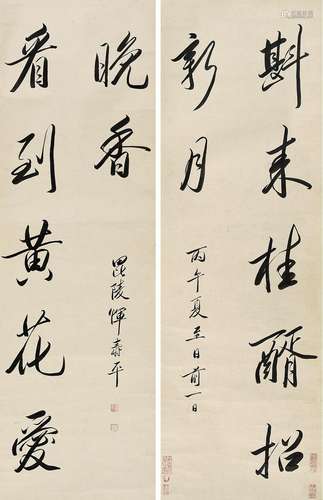 斟来桂醑招
新月
丙午夏至日前一日
看到黄花愛
晚香
毘陵惲壽平